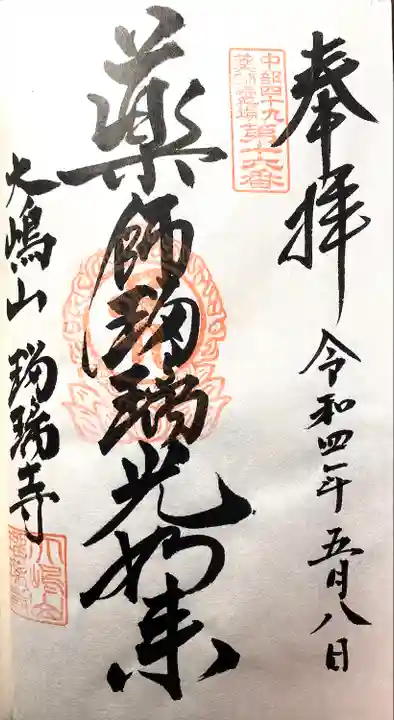 奉拝
令和四年五月八日
中部四十九
薬師霊場第十六番
薬師瑠璃光如来
大嶋山 瑠璃寺
大嶋山